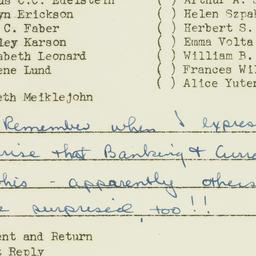 us C.C. Edelstein ( ) Arthur A. S
yn Erickson ( ) Helen Szpak
C. Faber ( ) Herbert S.
ley Karson ( ) Emma Volta
abeth Leonard ( ) William B.
ene Lund ( ) Frances Wil
( ) Alice Yuter
eth Meiklejohn
Remember when I expres
rise that Banking & Curre
this - apparently others
e surprised, too!!
ent and Return
t Reply